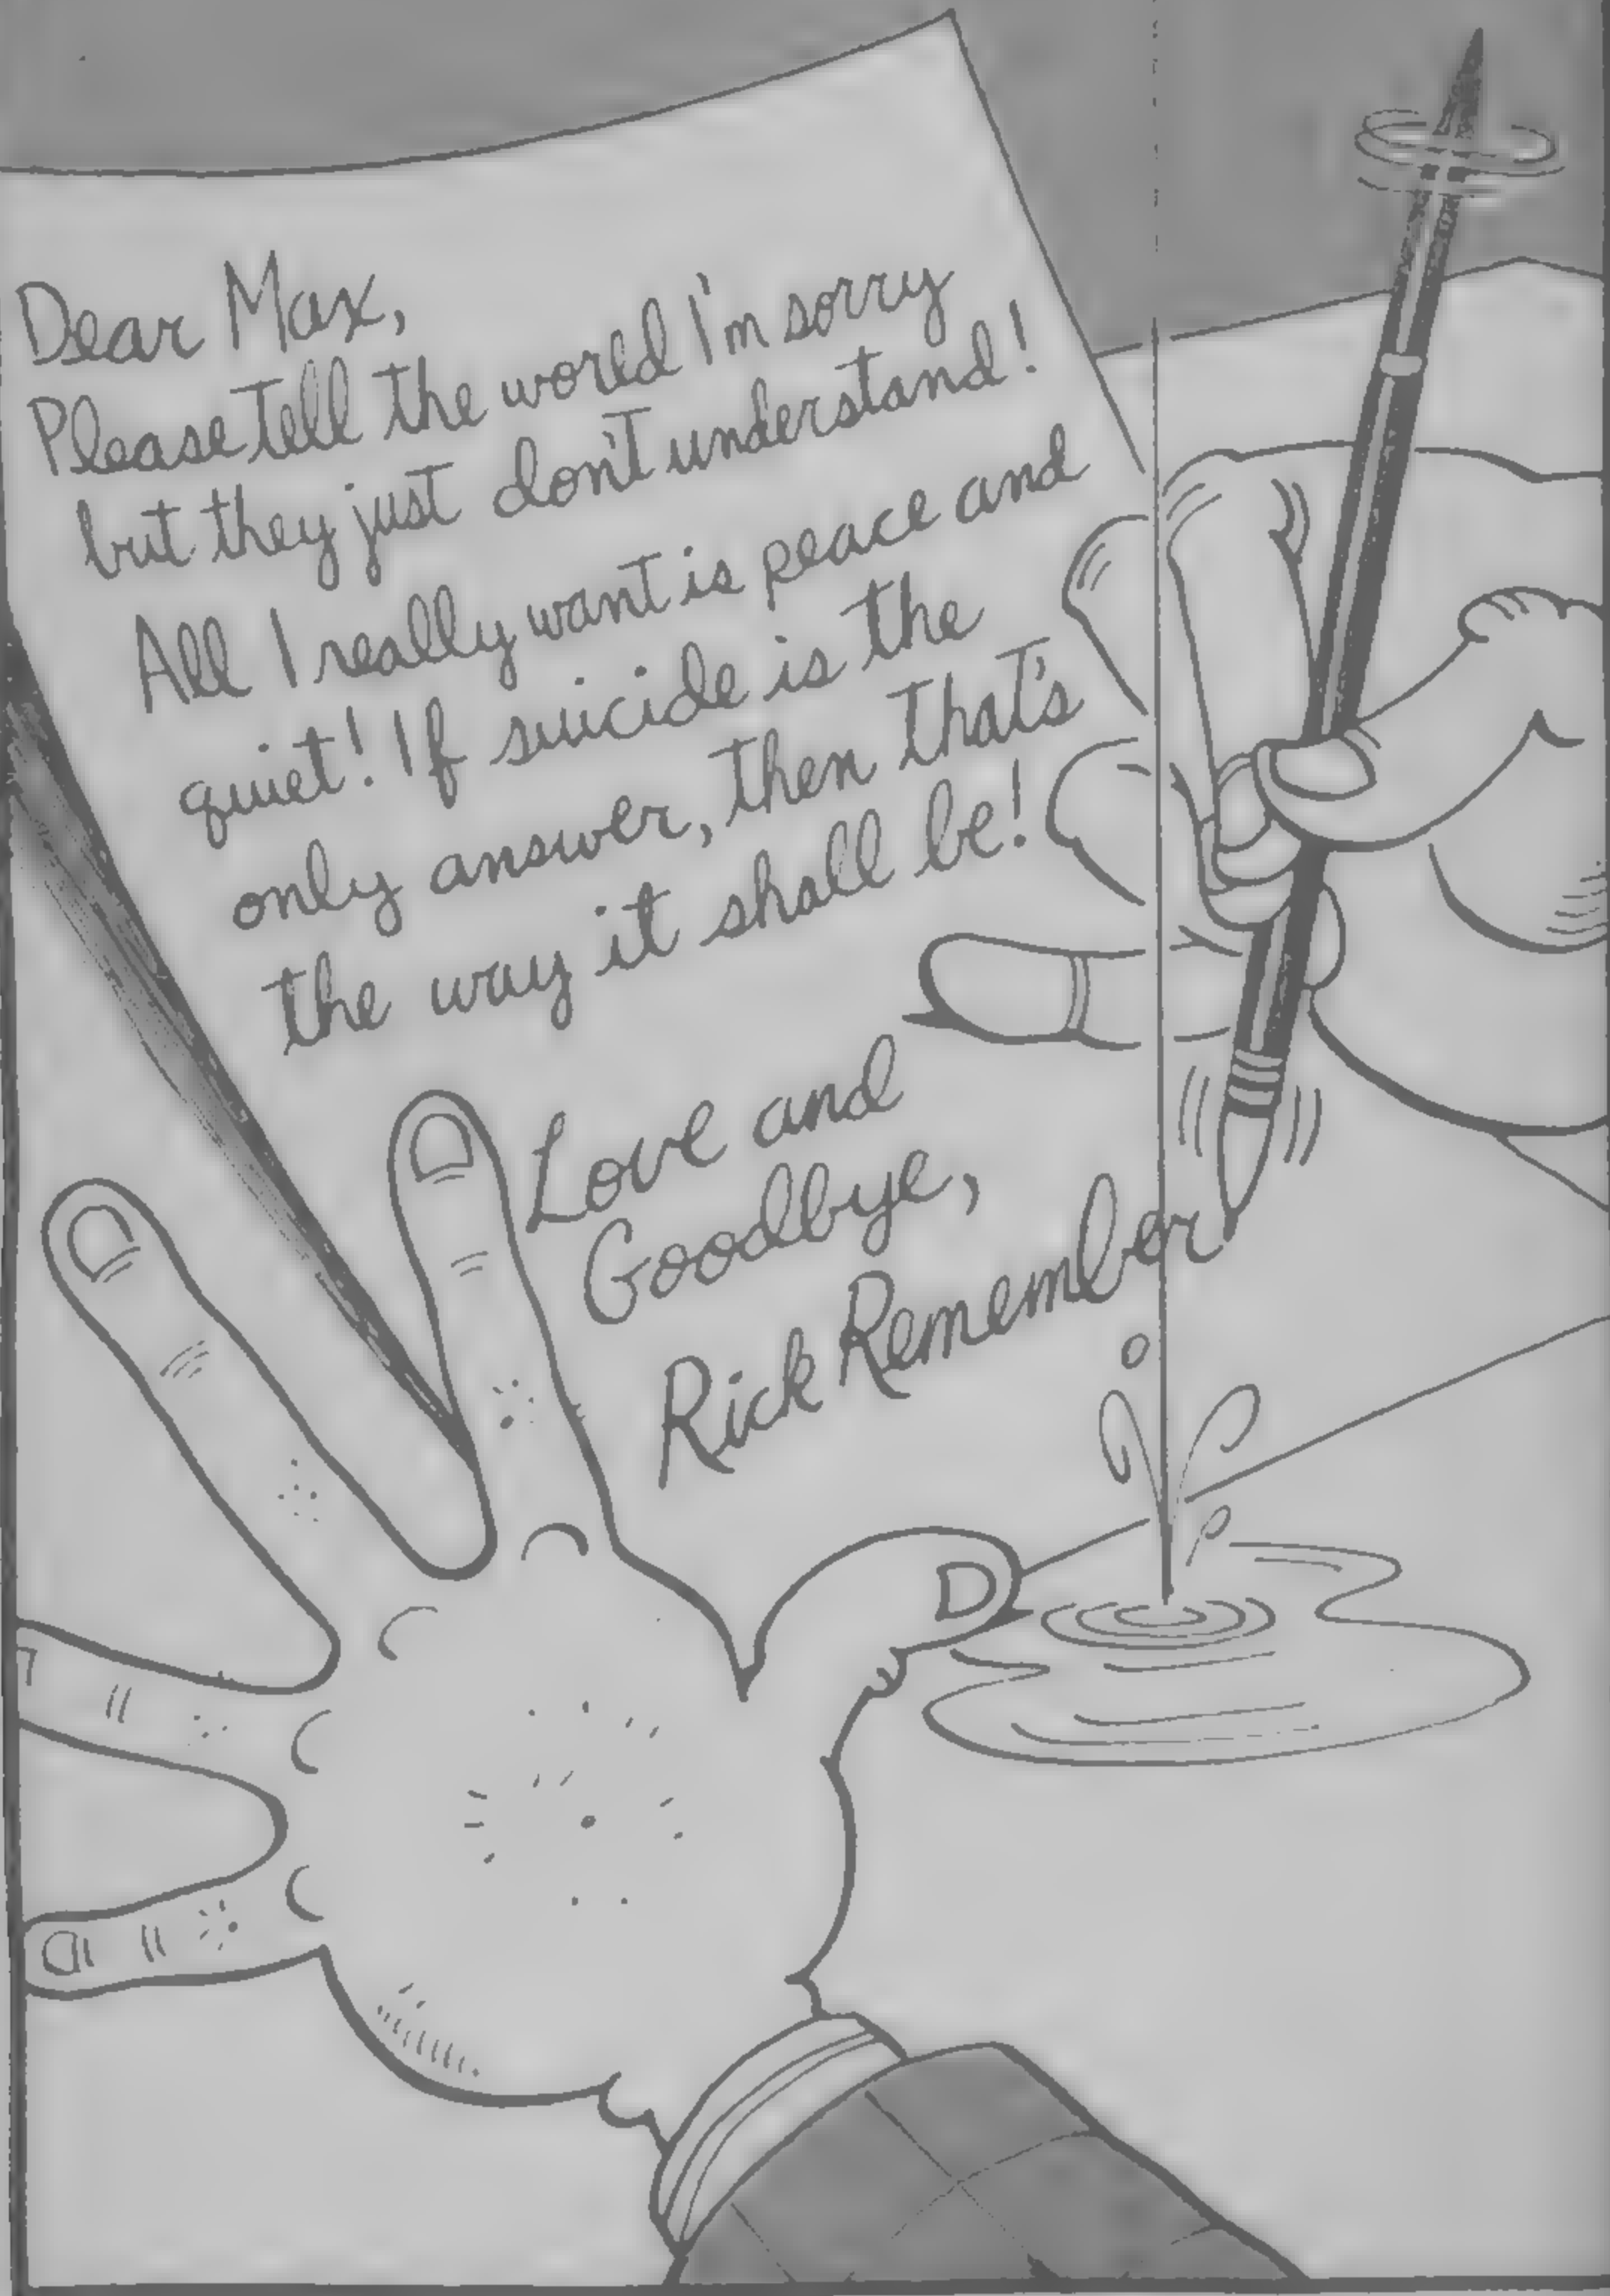 Dear Max,
Please tell the world I'm sorry
but they just don't understand!
All I really want is peace and
quiet! If suicide is the
only answer, then that's
the way it shall be!
Love and
Goodbye,
Rick Remember